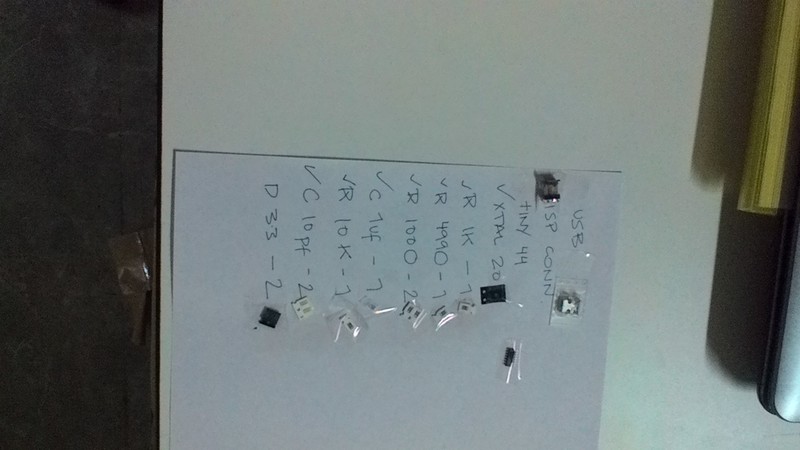 USB
ISP CONN
TINY 44
✓ XTAL 20
✓ R 1K - 1
✓ R 4990 - 1
✓ R 1000 - 2
✓ C 1uf - 1
✓ R 10K - 1
✓ C 10pf - 2
D 33 - 2